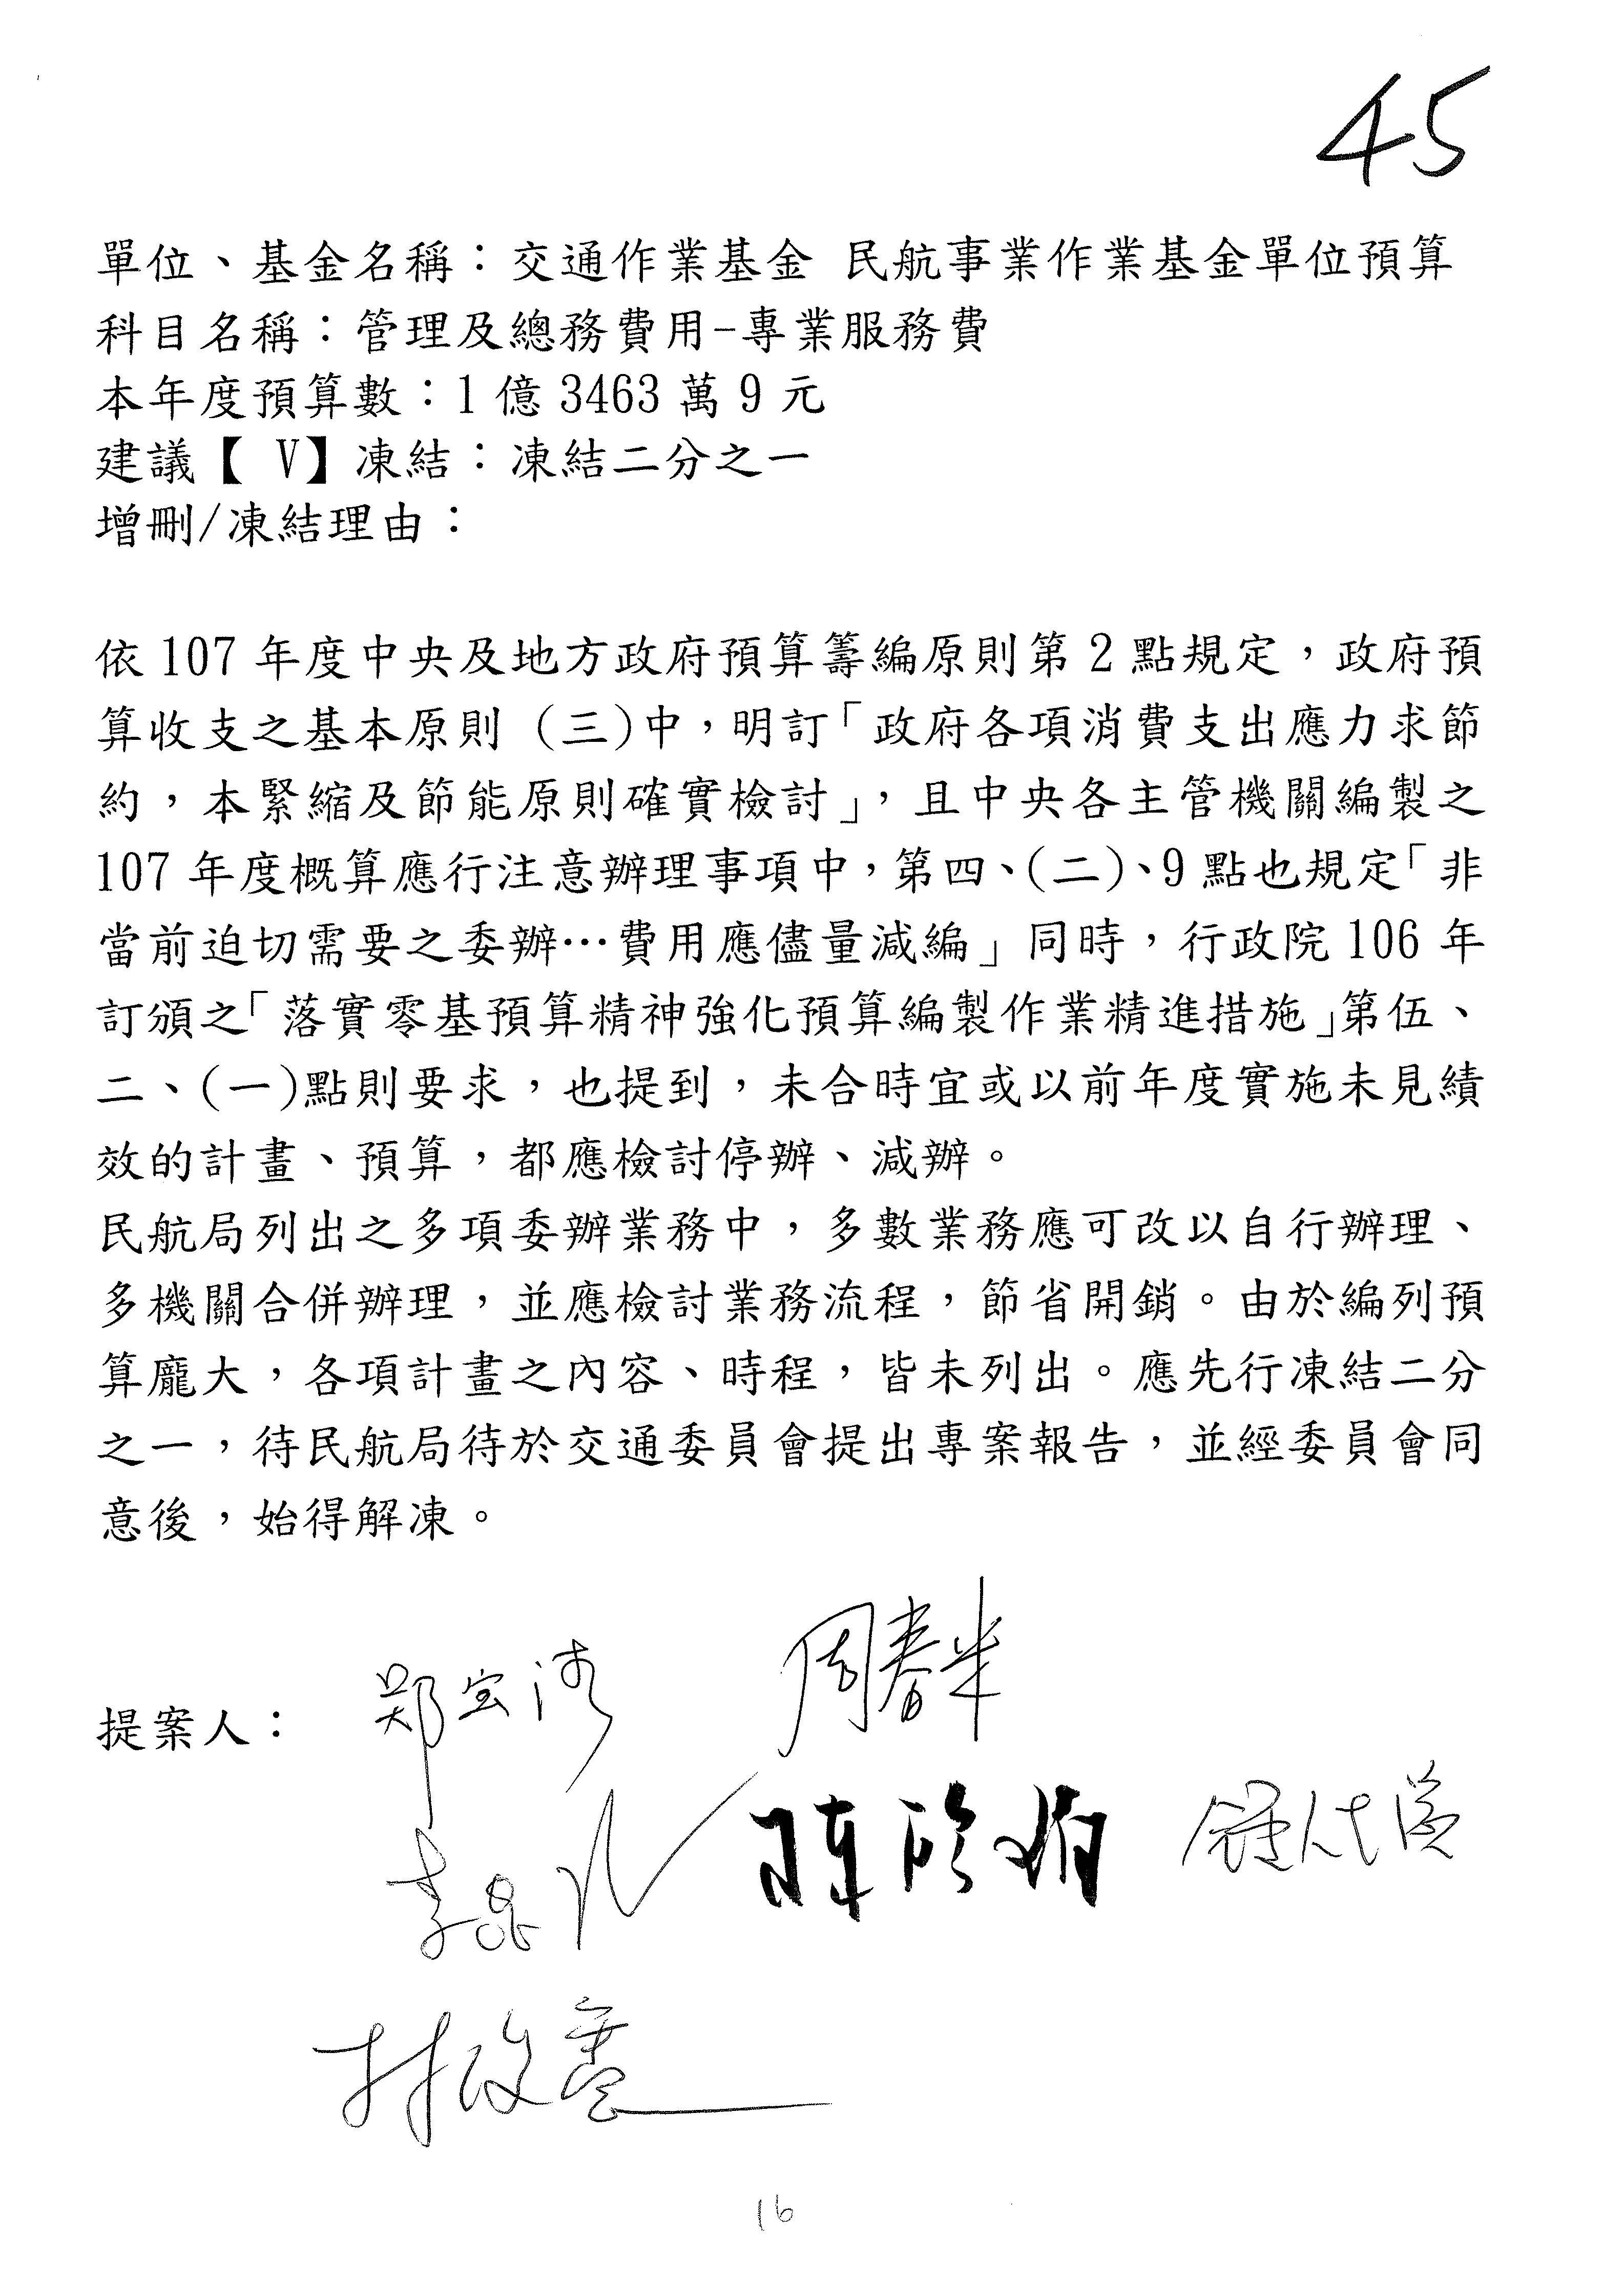 45
單位、基金名稱：交通作業基金 民航事業作業基金單位預算
科目名稱：管理及總務費用-專業服務費
本年度預算數：1 億 3463 萬 9 元
建議【 V】凍結：凍結二分之一
增刪/凍結理由：
依 107 年度中央及地方政府預算籌編原則第 2 點規定，政府預
算收支之基本原則 (三)中，明訂「政府各項消費支出應力求節
約，本緊縮及節能原則確實檢討」，且中央各主管機關編製之
107 年度概算應行注意辦理事項中，第四、(二)、9 點也規定「非
當前迫切需要之委辦…費用應儘量減編」同時，行政院 106 年
訂頒之「落實零基預算精神強化預算編製作業精進措施」第伍、
二、(一)點則要求，也提到，未合時宜或以前年度實施未見績
效的計畫、預算，都應檢討停辦、減辦。
民航局列出之多項委辦業務中，多數業務應可改以自行辦理、
多機關合併辦理，並應檢討業務流程，節省開銷。由於編列預
算龐大，各項計畫之內容、時程，皆未列出。應先行凍結二分
之一，待民航局待於交通委員會提出專案報告，並經委員會同
意後，始得解凍。
提案人：
鄭宝清
周春米
陳欣
林俊憲
16